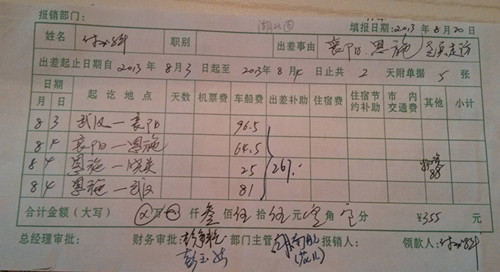 报销部门： 湖北团 填报日期:2013年8月20日
姓名 职别 出差事由 襄阳 恩施
出差起止日期自2013年8月3日起至2013年8月4日止共2天附单据5张
日期 起讫地点 天数 机票费 车船费 出差补助 住宿费 住宿节约补助 市内交通费 其他 小计
月 日
8 3 武汉—襄阳 96.5
8 4 襄阳—恩施 64.5
8 4 恩施— 25 267.
8 4 恩施—武汉 81 88
合计金额（大写） ⊗万⊗仟叁佰伍拾伍元零角零分 ¥355元
总经理审批: 财务审批: 部门主管 报销人: 领款人: